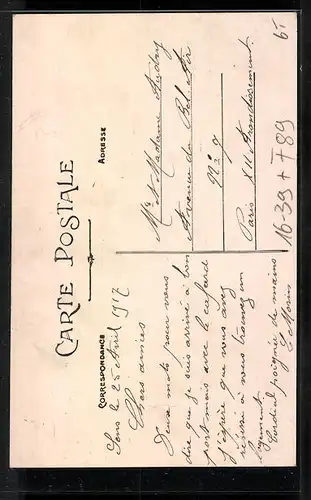 CARTE POSTALE
CORRESPONDANCE
ADRESSE
Sens le 25 Avril 1917
Chers amies
Deux mots pour vous
dire que je suis arrivé à bon
port mais avec le cafard
j'espère que vous avez
réussi à nous trouver un
logement.
Cordial poignée de mains
Mr & Madame
Avenue du Bel Air
Nº 9
Paris XII Arrondissement.
16-39 + F 89
bi